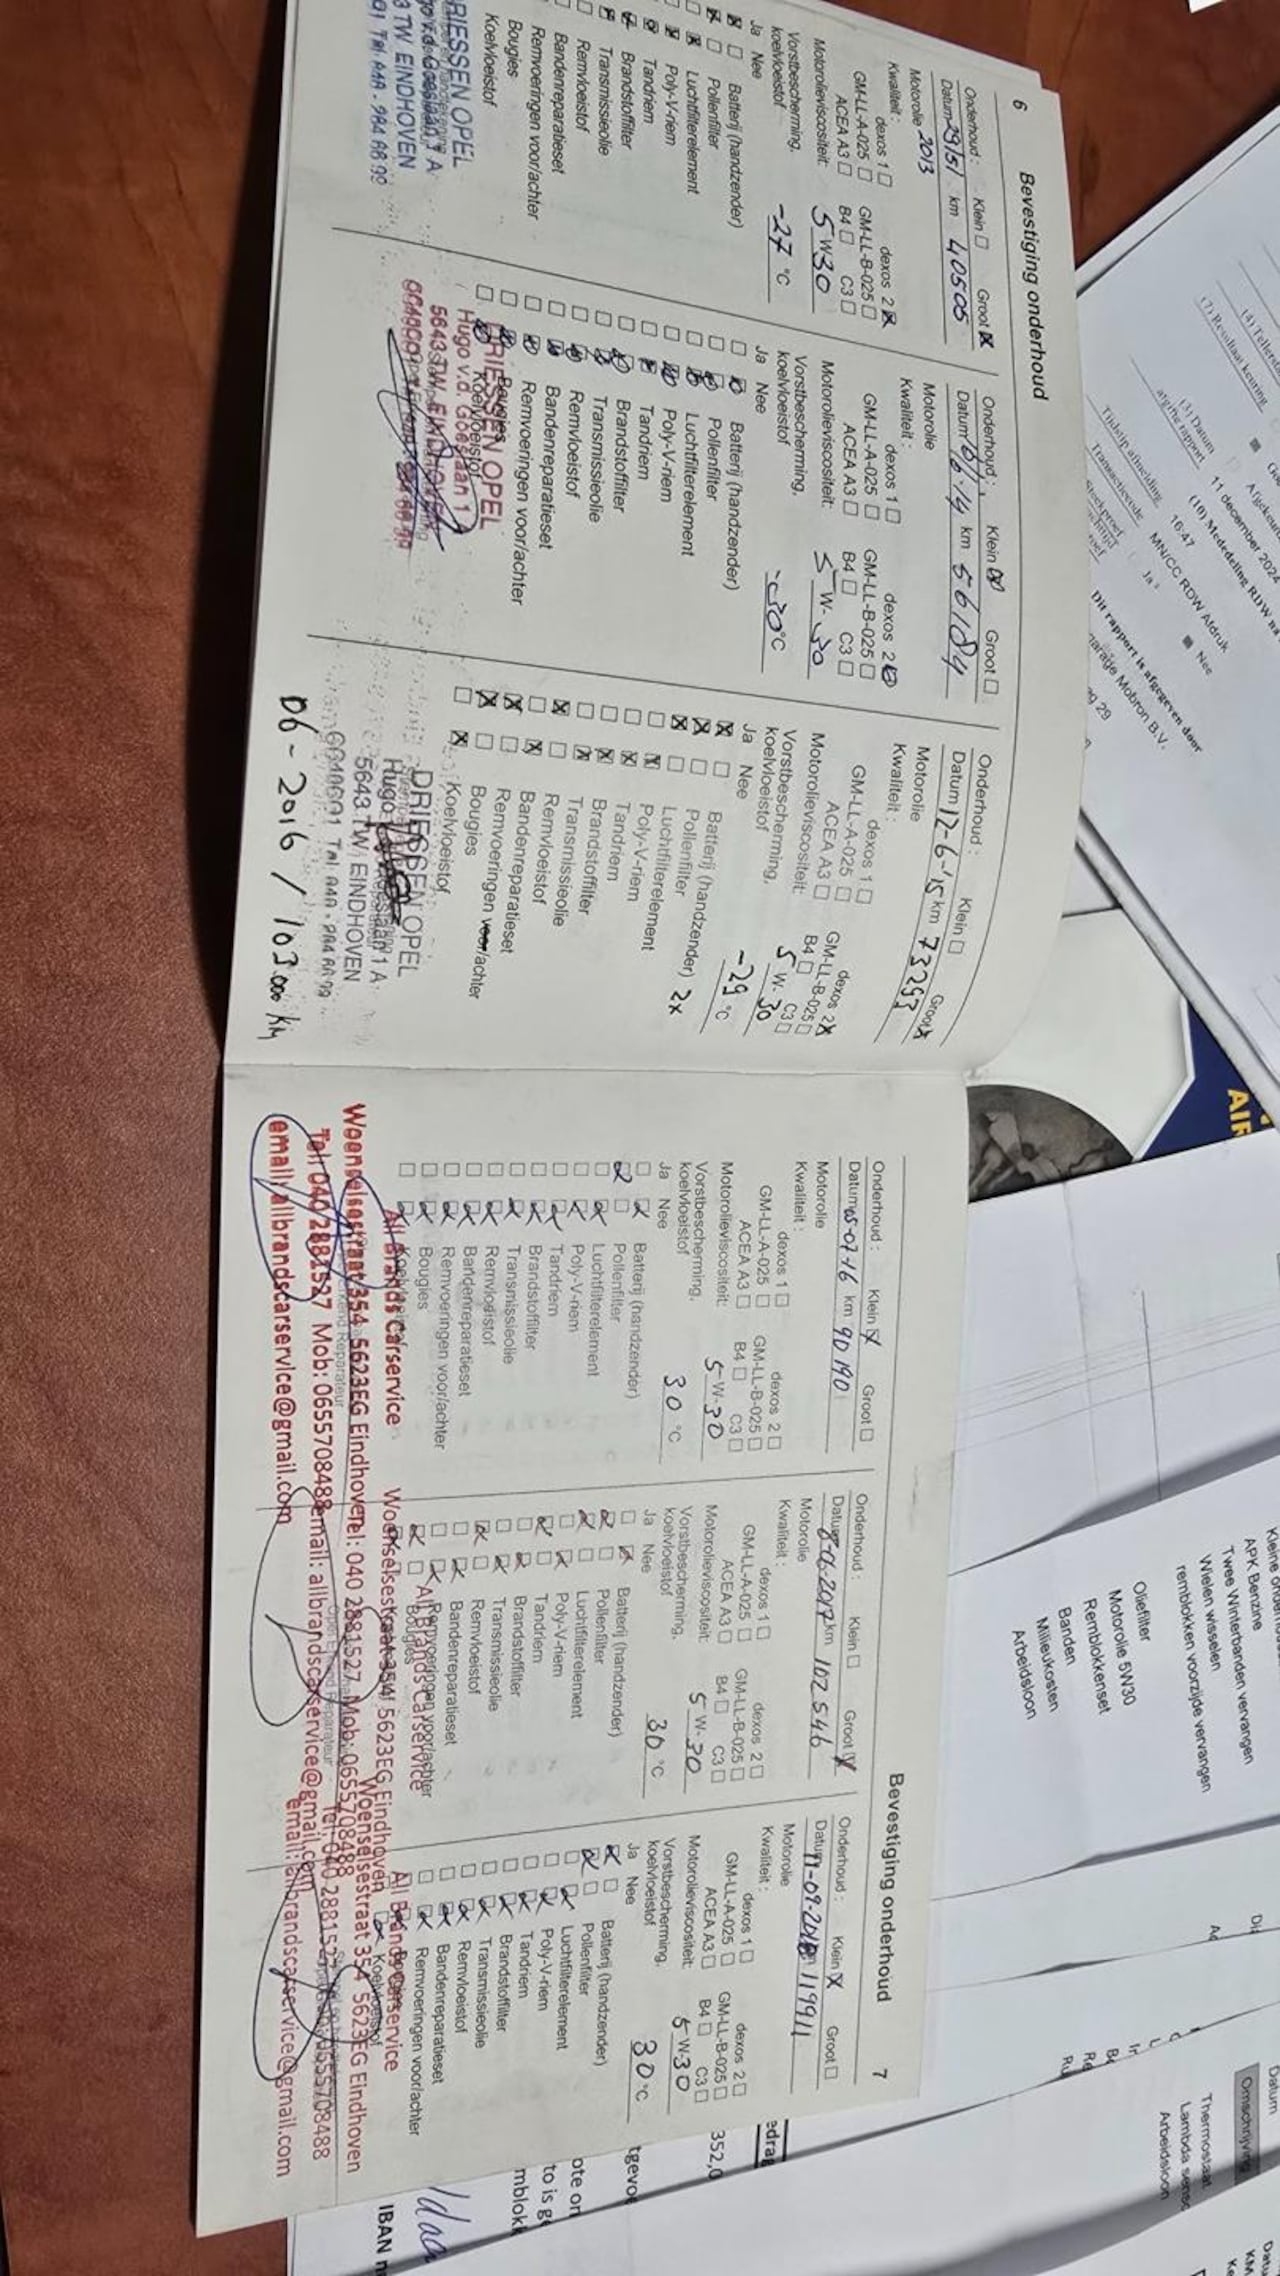 6 Bevestiging onderhoud
Onderhoud: Klein Groot
Datum 29/5/ km 40505
Motorolie 2013
Kwaliteit:
dexos 1 dexos 2
GM-LL-A-025 GM-LL-B-025
ACEA A3 B4 C3
Motorolieviscositeit: 5 W 30
Vorstbescherming,
koelvloeistof -27 °C
Ja Nee
Batterij (handzender)
Pollenfilter
Luchtfilterelement
Poly-V-riem
Tandriem
Brandstoffilter
Transmissieolie
Remvloeistof
Bandenreparatieset
Remvoeringen voor/achter
Bougies
Koelvloeistof
RIESSEN OPEL
TW EINDHOVEN
Onderhoud: Klein Groot
Datum km 56184
Motorolie
Kwaliteit:
dexos 1 dexos 2
GM-LL-A-025 GM-LL-B-025
ACEA A3 B4 C3
Motorolieviscositeit: 5 W-30
Vorstbescherming,
koelvloeistof -30 °C
Ja Nee
Batterij (handzender)
Pollenfilter
Luchtfilterelement
Poly-V-riem
Tandriem
Brandstoffilter
Transmissieolie
Remvloeistof
Bandenreparatieset
Remvoeringen voor/achter
Bougies
Koelvloeistof
DRIESSEN OPEL
Hugo v.d. Goeslaan 1
5643 TW EINDHOVEN
Onderhoud: Klein Groot
Datum 12-6-'15 km 73293
Motorolie
Kwaliteit:
dexos 1 dexos 2
GM-LL-A-025 GM-LL-B-025
ACEA A3 B4 C3
Motorolieviscositeit: 5 W-30
Vorstbescherming,
koelvloeistof -29 °C
Ja Nee
Batterij (handzender) 2x
Pollenfilter
Luchtfilterelement
Poly-V-riem
Tandriem
Brandstoffilter
Transmissieolie
Remvloeistof
Bandenreparatieset
Remvoeringen voor/achter
Bougies
Koelvloeistof
DRIESSEN OPEL
5643 TW EINDHOVEN
06-2016 / 103.000 KM
Bevestiging onderhoud 7
Onderhoud: Klein Groot
Datum 05-07-16 km 90190
Motorolie
Kwaliteit:
dexos 1 dexos 2
GM-LL-A-025 GM-LL-B-025
ACEA A3 B4 C3
Motorolieviscositeit: 5 W-30
Vorstbescherming,
koelvloeistof 30 °C
Ja Nee
Batterij (handzender)
Pollenfilter
Luchtfilterelement
Poly-V-riem
Tandriem
Brandstoffilter
Transmissieolie
Remvloeistof
Bandenreparatieset
Remvoeringen voor/achter
Bougies
Koelvloeistof
All Brands Carservice
Woenselsestraat 354 5623EG Eindhoven
Tel: 040 2881527 Mob: 0655708488
email: allbrandscarservice@gmail.com
Onderhoud: Klein Groot
Datum 8-06-2017 km 102546
Motorolie
Kwaliteit:
dexos 1 dexos 2
GM-LL-A-025 GM-LL-B-025
ACEA A3 B4 C3
Motorolieviscositeit: 5 W-30
Vorstbescherming,
koelvloeistof 30 °C
Ja Nee
Batterij (handzender)
Pollenfilter
Luchtfilterelement
Poly-V-riem
Tandriem
Brandstoffilter
Transmissieolie
Remvloeistof
Bandenreparatieset
Remvoeringen voor/achter
Bougies
All Brands Carservice
Woenselsestraat 354 5623EG Eindhoven
Tel: 040 2881527 Mob: 0655708488
email: allbrandscarservice@gmail.com
Onderhoud: Klein Groot
Datum 11-09-2018 119911
Motorolie
Kwaliteit:
dexos 1 dexos 2
GM-LL-A-025 GM-LL-B-025
ACEA A3 B4 C3
Motorolieviscositeit: 5 W-30
Vorstbescherming,
koelvloeistof 30 °C
Ja Nee
Batterij (handzender)
Pollenfilter
Luchtfilterelement
Poly-V-riem
Tandriem
Brandstoffilter
Transmissieolie
Remvloeistof
Bandenreparatieset
Remvoeringen voor/achter
Bougies
Koelvloeistof
All Brands Carservice
Woenselsestraat 354 5623EG Eindhoven
Tel: 040 2881527 0655708488
email: allbrandscarservice@gmail.com
(7) Resultaat keuring
(3) Datum
afgifte rapport 11 december 2024
Tijdstip afmelding 16:47
Transactiecode MN/CC RDW Afdruk
Ja Nee
(10) Mededeling RDW
Dit rapport is afgegeven door
garage Mobron B.V.
29
AIR
APK Benzine
Twee Winterbanden vervangen
Wielen wisselen
remblokken voorzijde vervangen
Oliefilter
Motorolie 5W30
Remblokkenset
Banden
Milieukosten
Arbeidsloon
Datum
Omschrijving
Thermostaat
Lambda
Arbeidsloon
352,0
IBAN